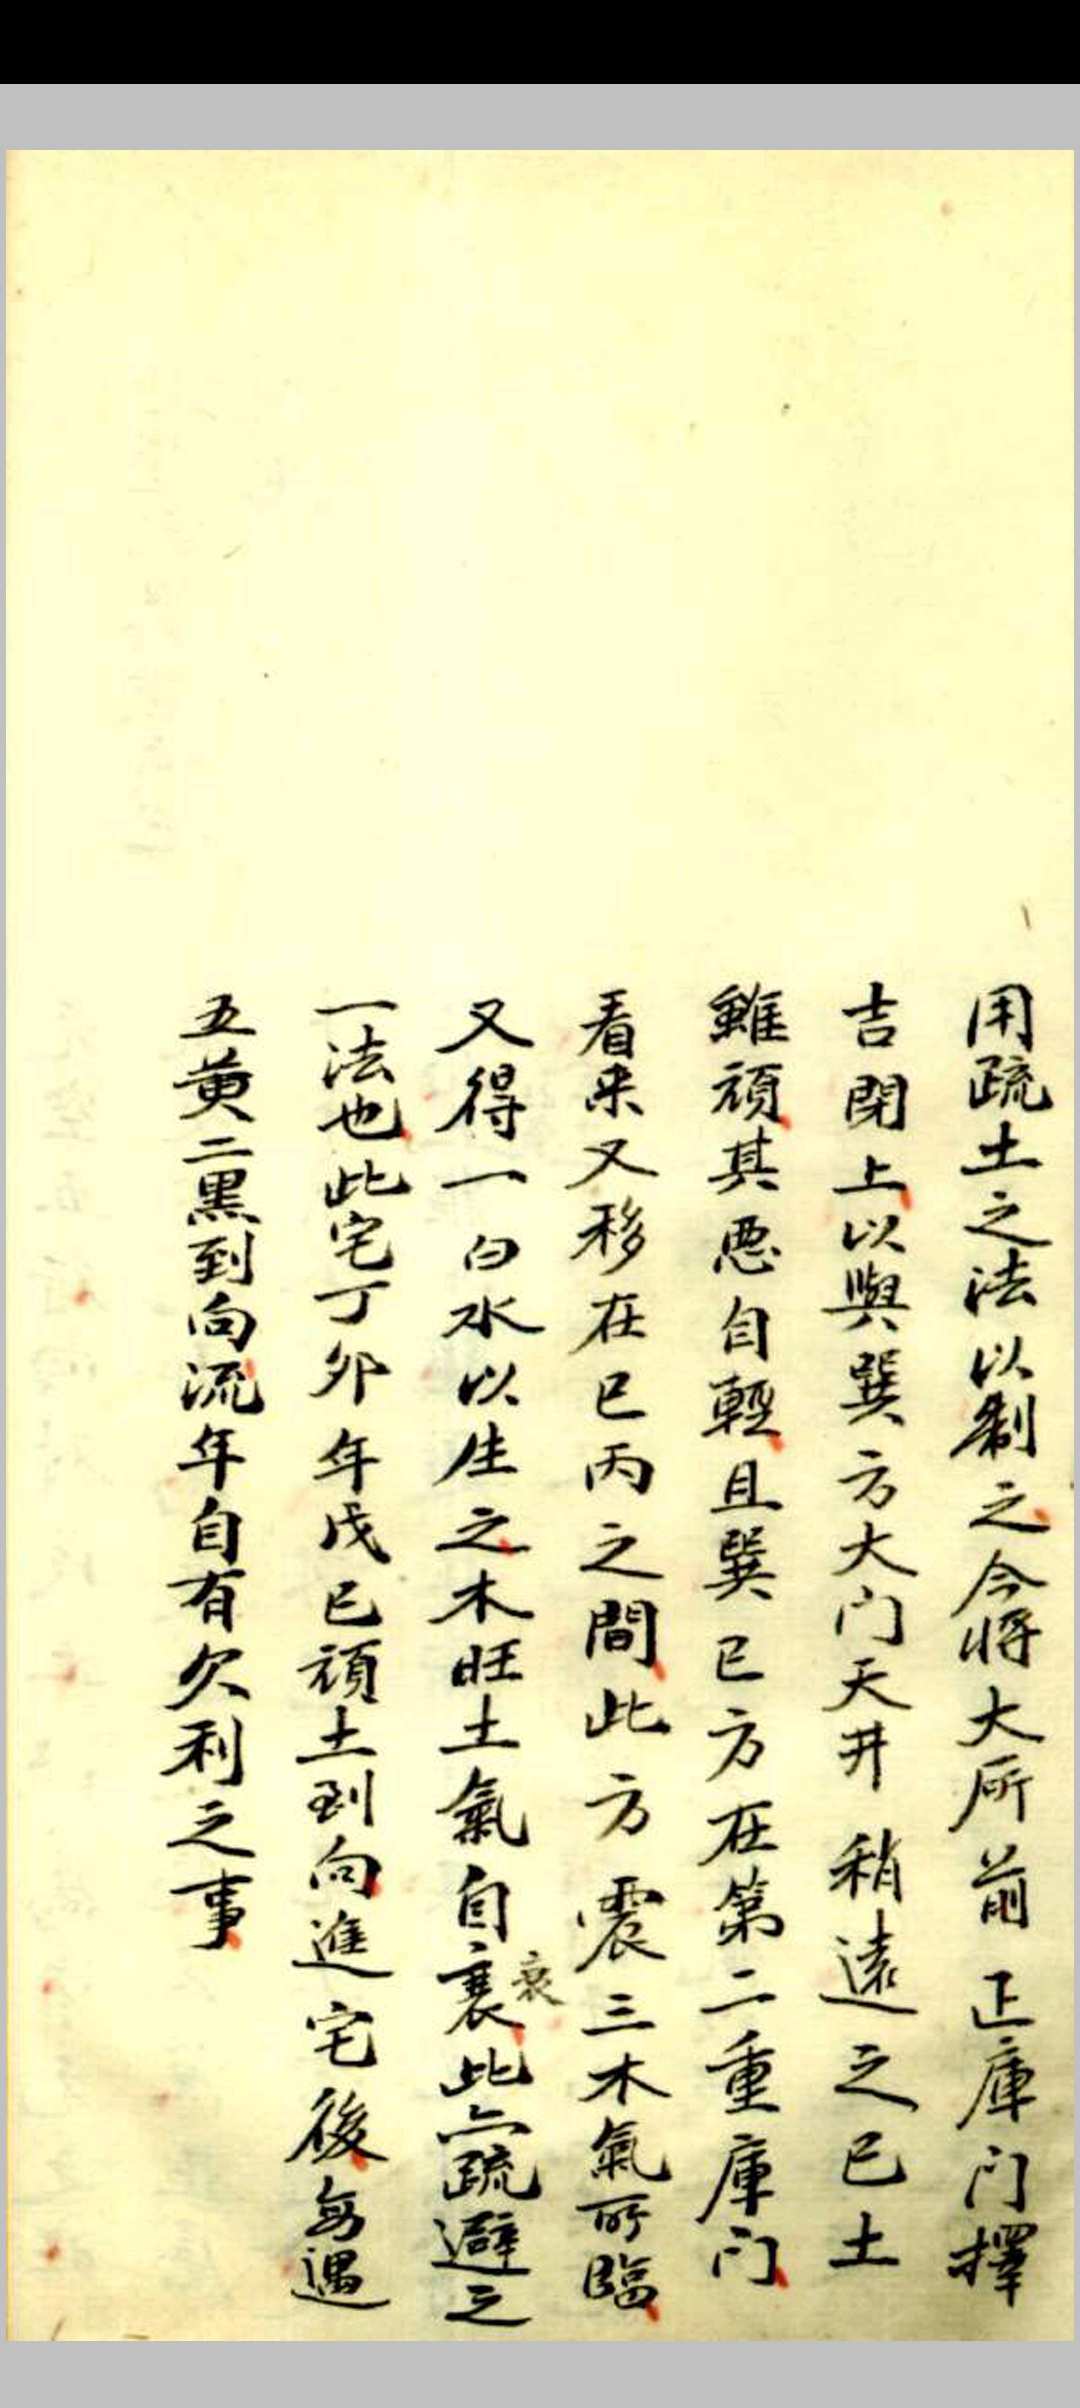 用疏土之法以制之今将大所前正庫门擇
吉閉上以與巽方大门天井稍遠之巳土
雖頑其恶自輕且巽巳方在第二重庫门
看来又移在巳丙之間此方震三木氣所臨
又得一白水以生之木旺土氣自衰此亦疏避之
衰
一法也此宅丁卯年戊己頑土到向進宅後每遇
五黄二黑到向流年自有欠利之事